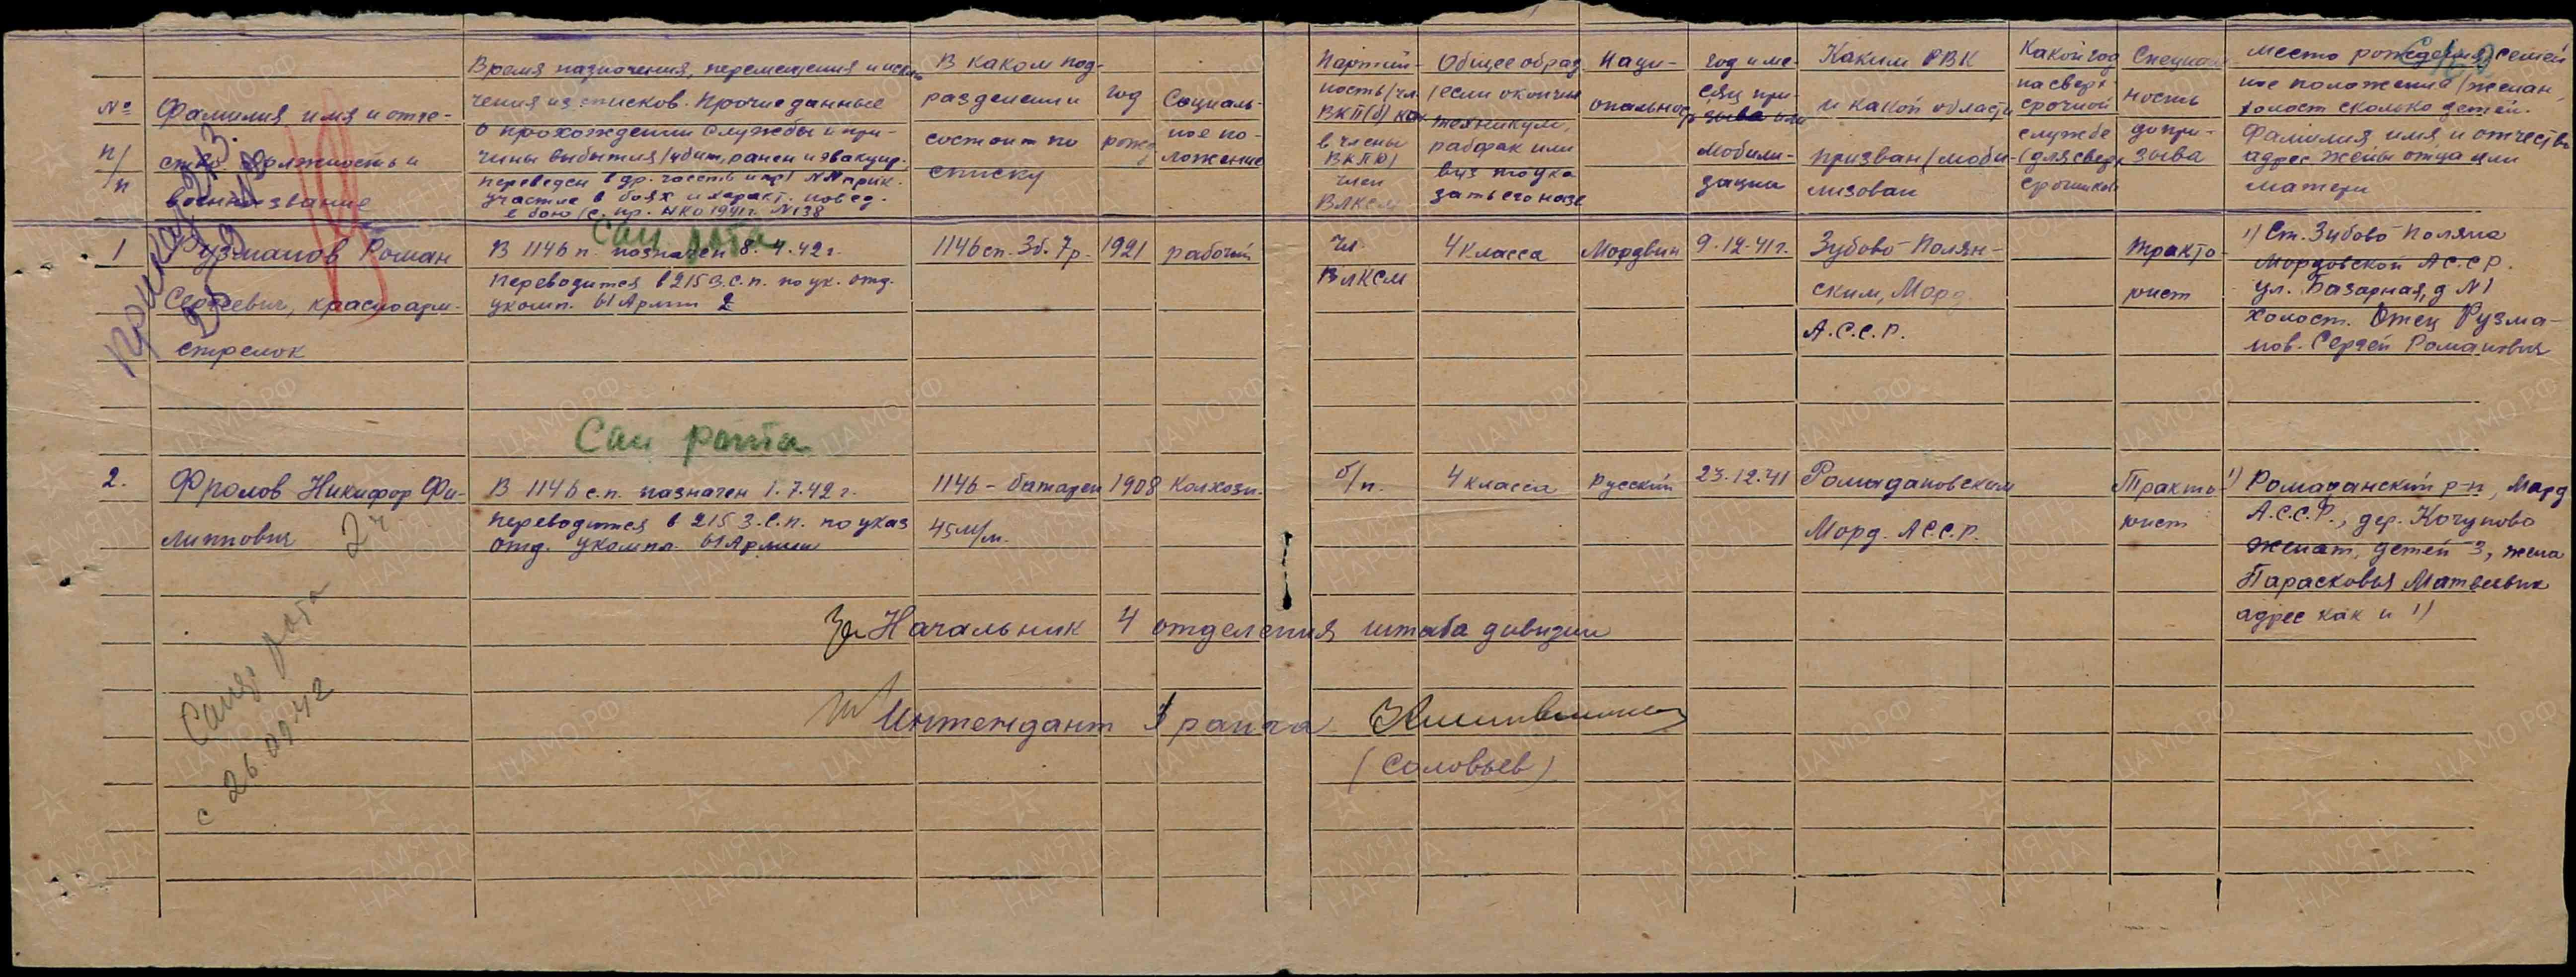 №
п/п
Фамилия имя и отче-
ство должность и
военн. звание
Время назначения, перемещения и исклю-
чения из списков. Прочие данные
о прохождении службы и при-
чины выбытия /убит, ранен и эвакуир.,
переведен в др. часть и пр/ NN прик.
участие в боях и характ. повед.
в бою /с. пр. НКО 1941 г. N 138
В каком под-
разделении
состоит по
списку
год
рожд
Социаль-
ное по-
ложение
Партий-
ность/чл.
ВКП(б) кан
в члены
ВКП(б)
член
ВЛКСМ
Общее образ
/если окончил
техникум,
рабфак или
вуз то ука
зать его назв
Наци-
ональност
год и ме-
сяц при-
зыва или
мобили-
зации
Каким РВК
и какой области
призван/моби-
лизован
Какой год
на сверх
срочной
службе
(для сверх
срочников
Специал
ность
до при-
зыва
Место рождения, семей
ное положение /женат,
холост сколько детей.
Фамилия имя и отчество
адрес жены отца или
матери
приказ 213.
1
Рузманов Роман
Сергеевич, красноарм-
стрелок
Сан рота
В 1146 п. назначен 8.4.42 г.
Переводится в 215 З.С.п. по ук. отд.
укомп. 61 Армии 2
1146 сп. 3б. 7р.
1921
рабочий
чл.
ВЛКСМ
4 класса
Мордвин
9.12.41 г.
Зубово-Полян-
ским, Морд.
А.С.С.Р.
Тракто-
рист
1) Ст. Зубово Поляна
Мордовской АССР.
ул. Базарная, д N 1
холост. Отец Рузма-
нов. Сергей Романович
Сан рота
2.
Фролов Никифор Фи-
липпович
2ч
В 1146 с.п. назначен 1.7.42 г.
Переводится в 215 З.С.п. по указ
отд. укомпл. 61 Армии
1146 - батареи
45 м/м.
1908
Колхозн.
б/п.
4 класса
Русский
23.12.41
Ромадановским
Морд. АССР.
Тракто-
рист
1) Ромаданский р-н, Морд
А.С.С.Р., дер. Кочуново
женат, детей 3, жена
Парасковья Матвеевна
адрес как и 1)
За Начальник 4 отделения штаба дивизии
Интендант 3 ранга
(Соловьев)
Сан. рота
с 26.09.42